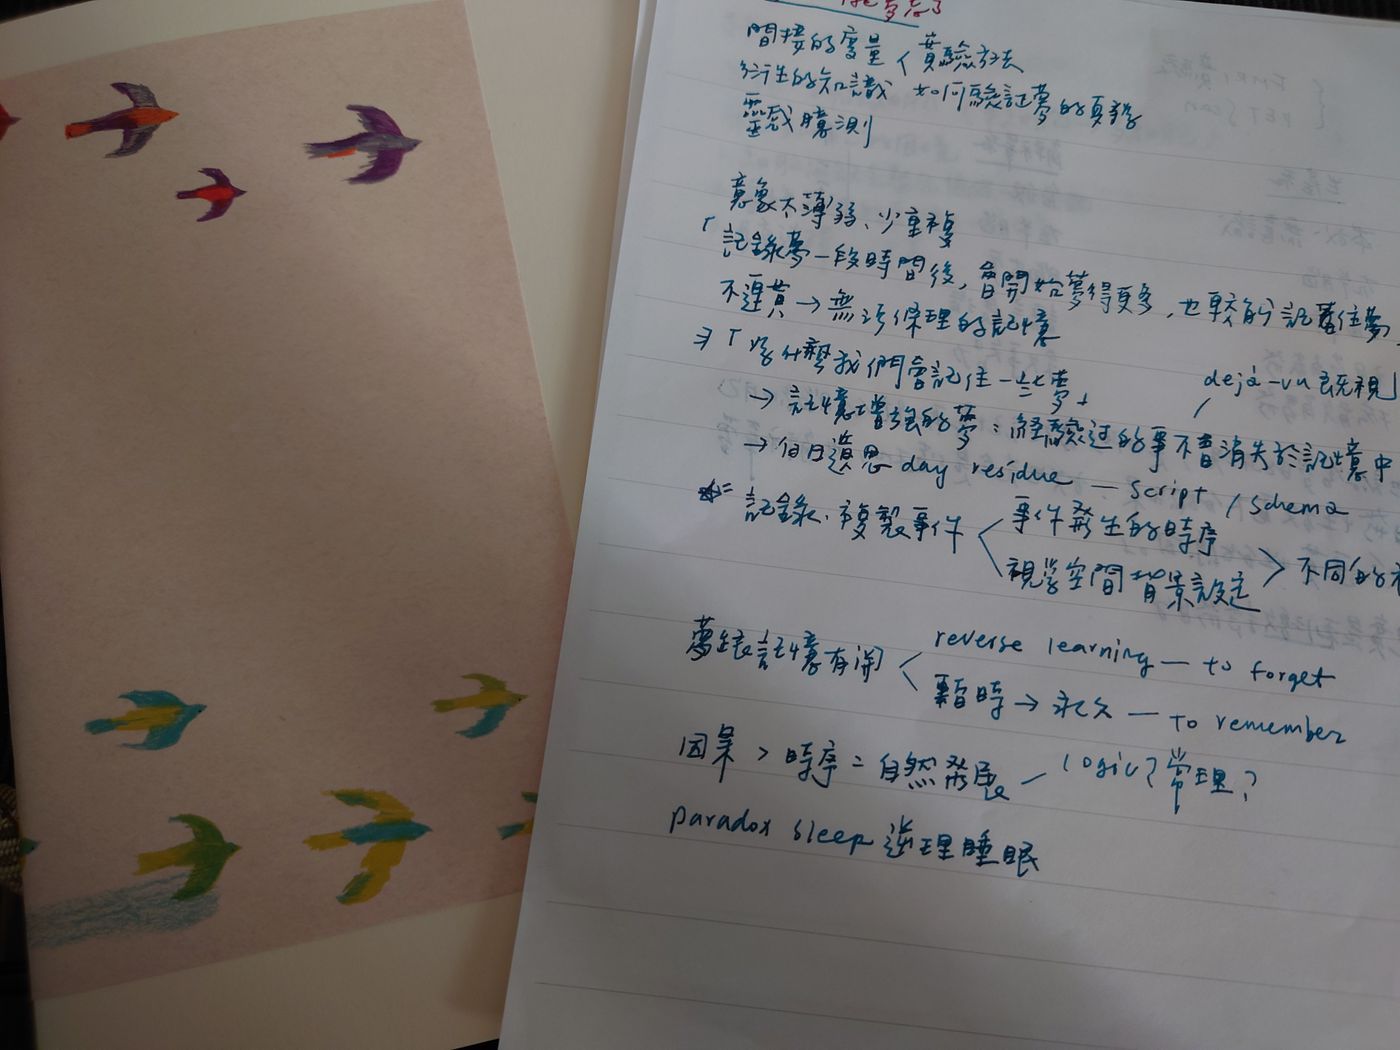 間接的度量 〈 實驗方法
衍生的知識 如何驗証夢的真發
靈感臆測
意象太薄弱、少重複
「記錄夢一段時間後，會開始夢得更多，也較能記住夢」
不連貫→無法條理的記憶
⇒「為什麼我們會記住一些夢」
deja-vu 既視
→ 記憶增強的夢：經驗过的事不會消失於記憶中
→ 白日遺思 day residue — script / schema
記錄、複製事件 〈 事件發生的時序
視覺空間背景設定 〉不同的
夢跟記憶有関 〈 reverse learning — to forget
暫時→永久 — to remember
因果 > 時序 = 自然發展 — logic? 常理?
paradox sleep 逆理睡眠